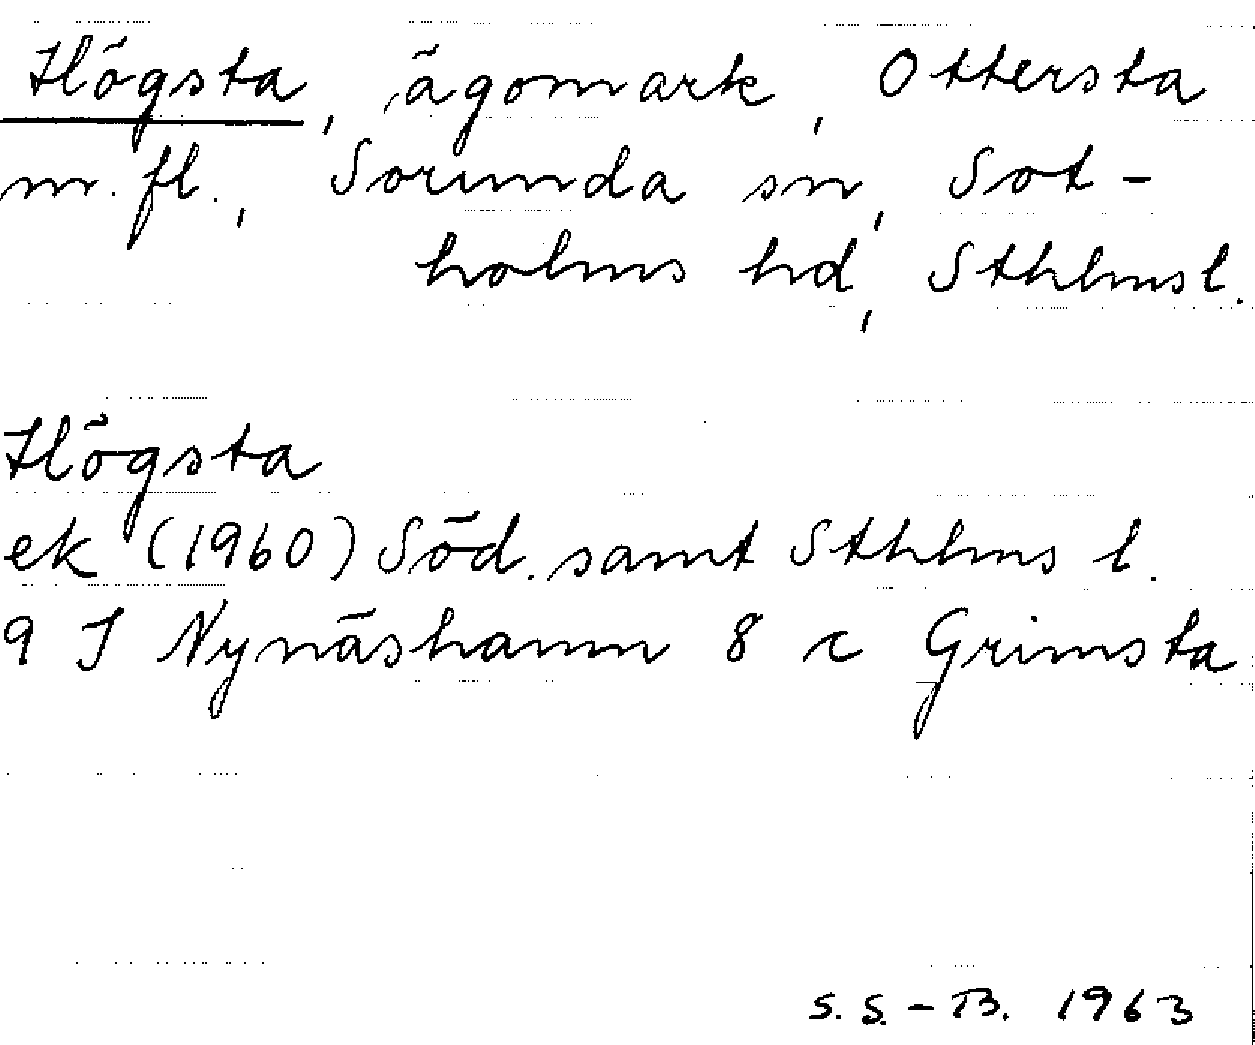 Högsta, ägomark, Ottersta
m. fl., Sorunda sn, Sot-
holms hd, Sthlms l.
Högsta
ek (1960) Söd. samt Sthlms l.
9 I Nynäshamn 8 c Grimsta
S. S. - B. 1963